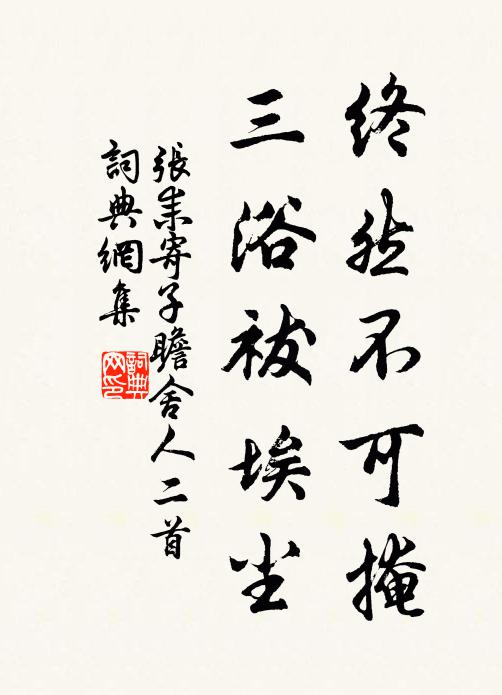 終然不可掩
三浴祓埃尘
張耒寄子瞻舍人二首
詞典網集
詞典
网印